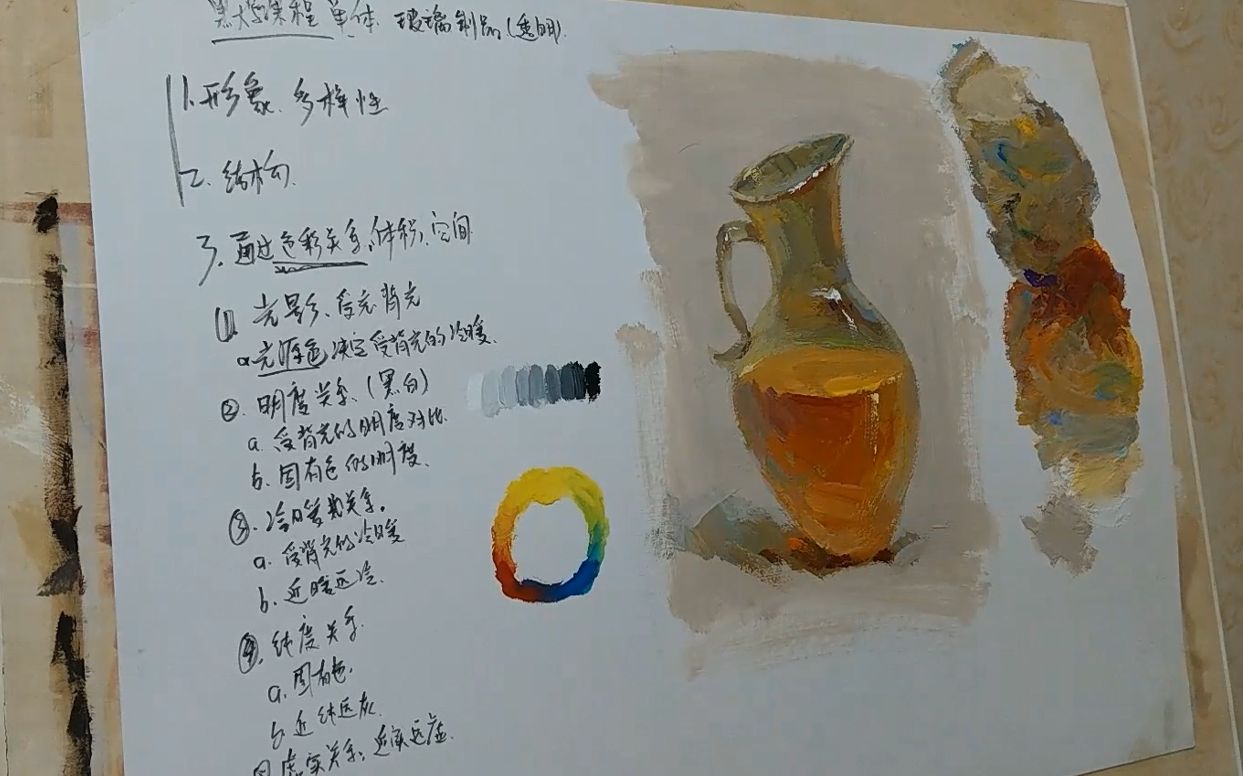 课程 单体 玻璃制品(透明)
1. 形象、多样性
2. 结构
3. 通过色彩关系、体积、空间
①. 光影、受光背光
a. 光源色决定受背光的冷暖、
②. 明度关系、(黑白)
a. 受背光的明度对比.
b. 固有色的明度、
③. 冷暖关系。
a. 受背光的冷暖
b. 近暖远冷.
④. 纯度关系.
a. 固有色.
b. 近纯远灰.
虚实关系: 近实远虚.